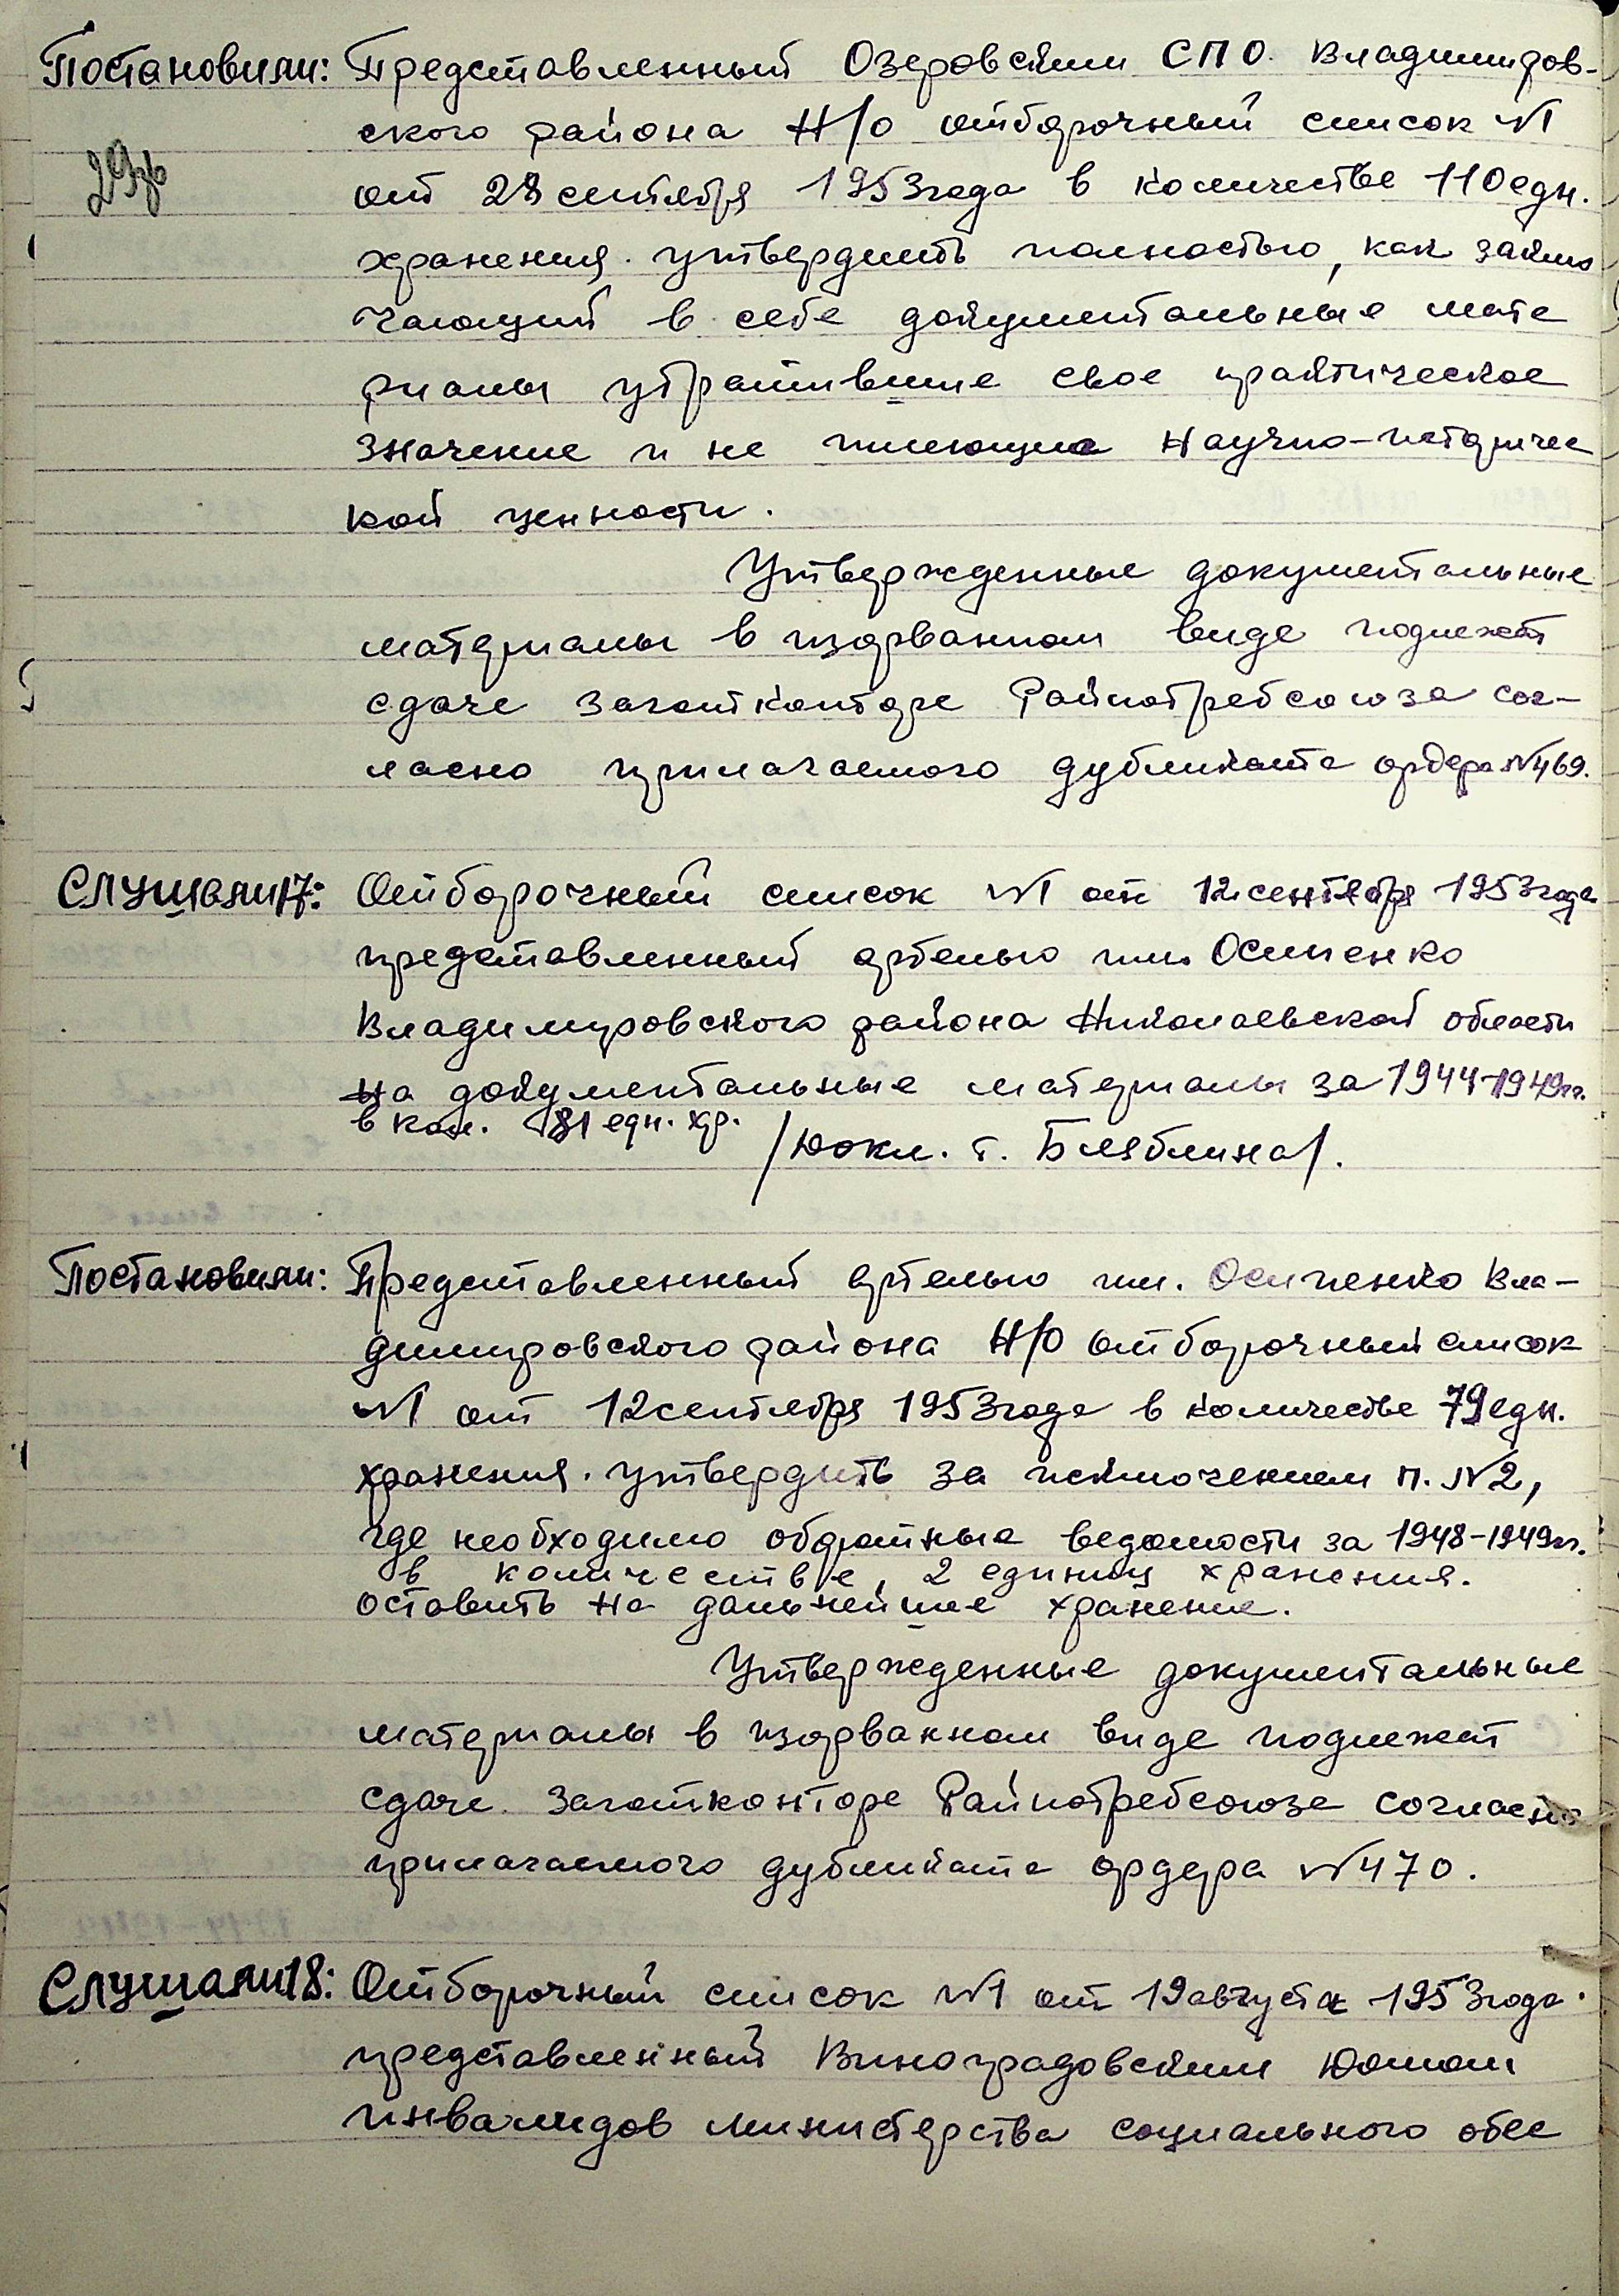 Постановили: Представленный Озеровским СПО. Владимиров-
ского района Н/о отборочный список №1
от 28 сентября 1953 года в количестве 110 едн.
хранения. утвердить полностью, как заклю
чающий в себе документальные мате
риалы утратившие свое практическое
значение и не имеющие научно-историчес
кой ценности.
Утвержденные документальные
материалы в изорванном виде подлежат
сдаче Заготконторе Райпотребсоюза сог-
ласно прилагаемого дубликата ордера №469.
Слушали 17: Отборочный список №1 от 12 сентября 1953 года
представленный артелью им. Осипенко
Владимировского района Николаевской области
на документальные материалы за 1944-1949гг.
в кол. 81 едн. хр.
/Докл. т. Бляблина/.
Постановили: Представленный артелью им. Осипенко Вла-
димировского района Н/О отборочный список
№1 от 12 сентября 1953 года в количестве 79 едн.
хранения. утвердить за исключением п. №2,
где необходимо обратные ведомости за 1948-1949гг.
в количестве, 2 единиц хранения.
оставить на дальнейшее хранение.
Утвержденные документальные
материалы в изорванном виде подлежат
сдаче. Заготконторе Райпотребсоюза согласно
прилагаемого дубликата ордера №470.
Слушали 18: Отборочный список №1 от 19 августа 1953 года.
представленный Виноградовским Домом
инвалидов министерства социального обес